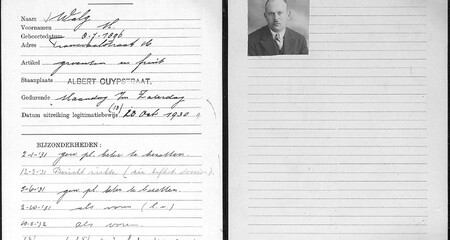 Naam Walg M.
Voornamen
Geboortedatum 8-7-1896
Adres Transvaalstraat 16
Artikel groenten en fruit
Staanplaats ALBERT CUYPSTRAAT.
Gedurende Maandag t/m Zaterdag
Datum uitreiking legitimatiebewijs 20 Oct 1930
BIJZONDERHEDEN:
gem. pl. beter te bezetten.
12-3-'31 Bericht ziekte
2-6-'31 gem. pl. beter te bezetten.
2-10-'31 als voren
als voren